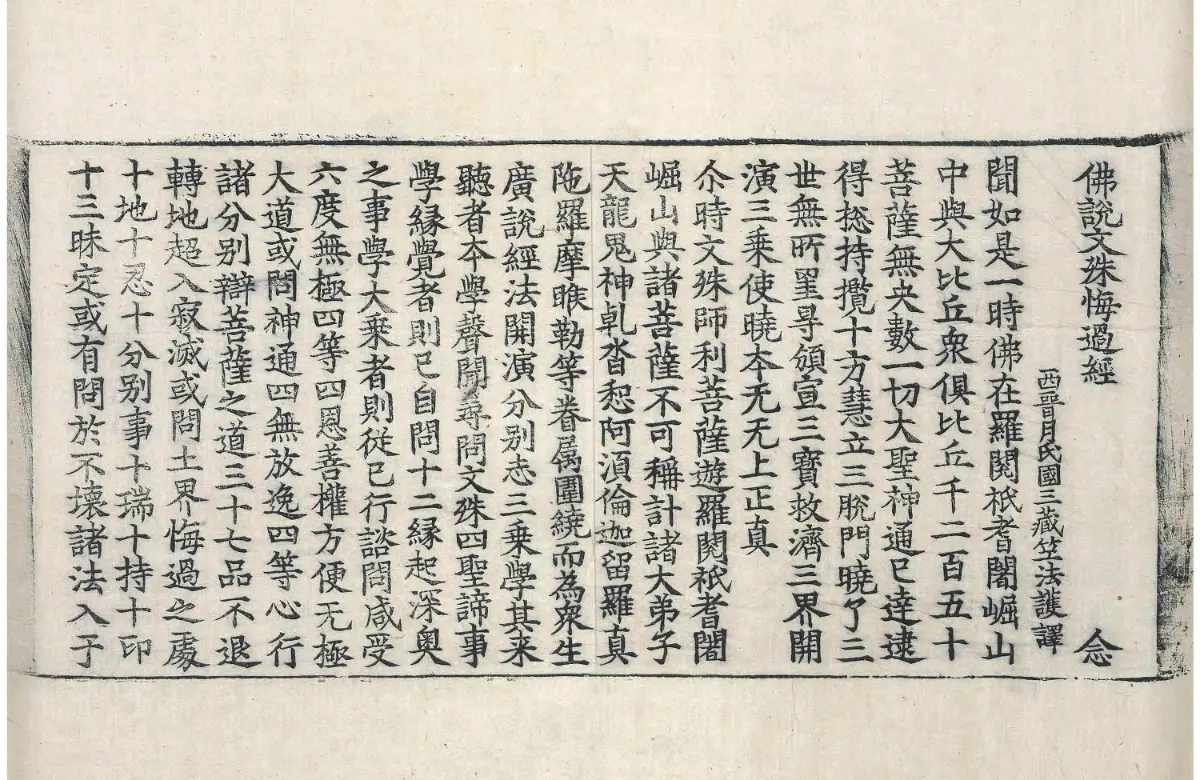 佛說文殊悔過經　　念
西晉月氏國三藏竺法護譯
聞如是一時佛在羅閱祇耆闍崛山
中與大比丘衆俱比丘千二百五十
菩薩無央數一切大聖神通已達逮
得捴持攬十方慧立三脫門曉了三
世無所罣㝵頒宣三寶救濟三界開
演三乗使曉夲无无上正真
尒時文殊師利菩薩遊羅閱祇耆闍
崛山與諸菩薩不可稱計諸大弟子
天龍鬼神乹沓惒阿湏倫迦留羅真
陁羅摩睺勒等眷属圍繞而為衆生
廣說經法開演分别志三乗學其来
聽者夲學聲聞尋問文殊四聖諦事
學縁覺者則已自問十二縁起深奥
之事學大乗者則從已行諮問咸受
六度無極四等四恩善權方便无極
大道或問神通四無放逸四等心行
諸分别辯菩薩之道三十七品不退
轉地超入寂滅或問土界悔過之處
十地十忍十分别事十瑞十持十印
十三昧定或有問於不壞諸法入于